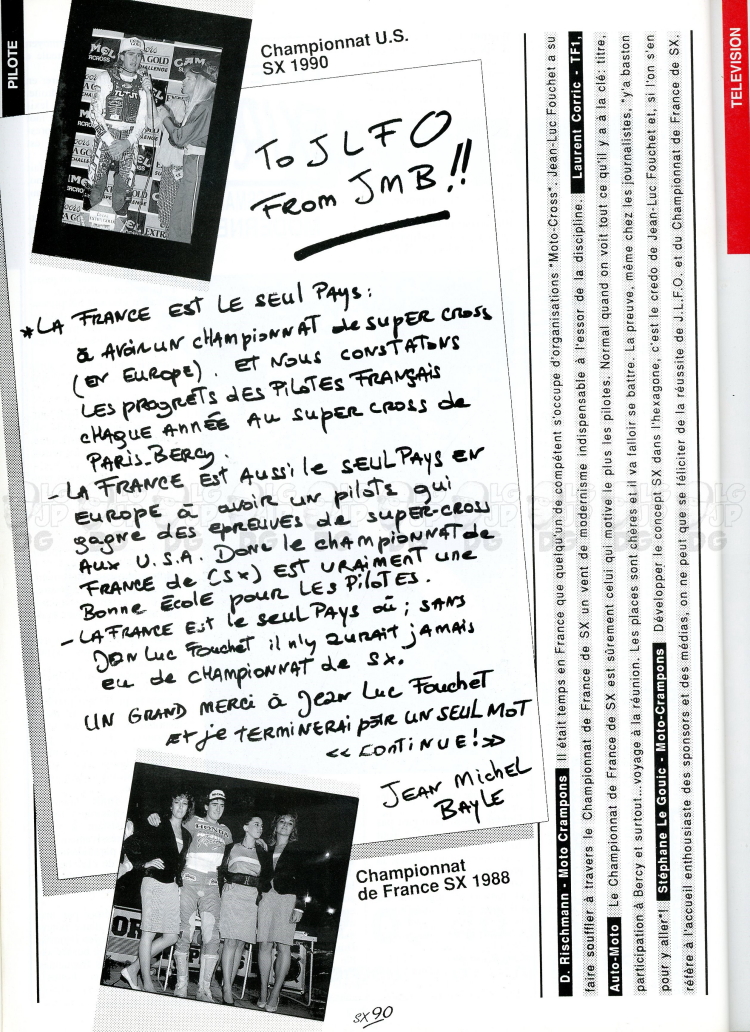 PILOTE
Championnat U.S.
SX 1990
To J L F O
From JMB !!
*LA FRANCE EST LE SEUL PAYS :
à AVOIR UN CHAMPIONNAT de SUPER CROSS
(EN EUROPE). ET NOUS CONSTATONS
LES PROGRETS DES PILOTES FRANÇAIS
CHAQUE ANNÉE AU SUPER CROSS de
PARIS-BERCY.
- LA FRANCE EST AUSSI LE SEUL PAYS EN
EUROPE à avoir UN pilots qui
gagne des EPREUVES de SUPER-CROSS
AUX U.S.A. Donc le CHAMPIONNAT de
FRANCE de (SX) EST VRAIMENT UNE
Bonne École pour LES PILOTES.
- LA FRANCE EST le SEUL PAYS OÙ ; SANS
JEAN Luc Fouchet il n'y aurait jamais
eu de CHAMPIONNAT de SX.
UN GRAND MERCI à Jean Luc Fouchet
ET je TERMINERAI PAR UN SEUL MOT
<< CONTINUE ! >>
JEAN Michel
BAYLE
Championnat
de France SX 1988
SX 90
TELEVISION
D. Rischmann - Moto Crampons Il était temps en France que quelqu'un de compétent s'occupe d'organisations "Moto-Cross". Jean-Luc Fouchet a su
faire souffler à travers le Championnat de France de SX un vent de modernisme indispensable à l'essor de la discipline. Laurent Corric - TF1,
Auto-Moto Le Championnat de France de SX est sûrement celui qui motive le plus les pilotes. Normal quand on voit tout ce qu'il y a à la clé: titre,
participation à Bercy et surtout...voyage à la réunion. Les places sont chères et il va falloir se battre. La preuve, même chez les journalistes, "y'a baston
pour y aller"! Stéphane Le Gouic - Moto-Crampons Développer le concept SX dans l'hexagone, c'est le credo de Jean-Luc Fouchet et, si l'on s'en
réfère à l'accueil enthousiaste des sponsors et des médias, on ne peut que se féliciter de la réussite de J.L.F.O. et du Championnat de France de SX.